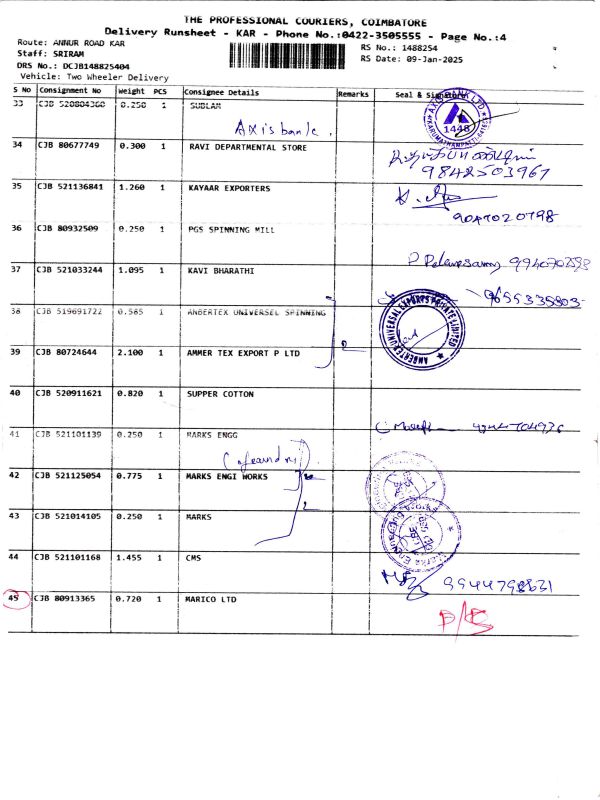 THE PROFESSIONAL COURIERS, COIMBATORE
Delivery Runsheet - KAR - Phone No.:0422-3505555 - Page No.:4
Route: ANNUR ROAD KAR
RS No.: 1488254
Staff: SRIRAM
RS Date: 09-Jan-2025
DRS No.: DCJB148825404
Vehicle: Two Wheeler Delivery
S No Consignment No Weight PCS Consignee Details Remarks Seal & Signature
33 CJB 520804360 0.250 1 SUBLAM
Axis bank.
AXIS BANK LTD
1448
34 CJB 80677749 0.300 1 RAVI DEPARTMENTAL STORE
9842503967
35 CJB 521136841 1.260 1 KAYAAR EXPORTERS
9047020798
36 CJB 80932509 0.250 1 PGS SPINNING MILL
37 CJB 521033244 1.095 1 KAVI BHARATHI
9655335803
38 CJB 519691722 0.585 1 ANBERTEX UNIVERSEL SPINNING
ANBERTEX UNIVERSAL EXPORTS PRIVATE LIMITED
39 CJB 80724644 2.100 1 AMMER TEX EXPORT P LTD
2
40 CJB 520911621 0.820 1 SUPPER COTTON
41 CJB 521101139 0.250 1 MARKS ENGG
42 CJB 521125054 0.775 1 MARKS ENGI WORKS
43 CJB 521014105 0.250 1 MARKS
44 CJB 521101168 1.455 1 CMS
9944798631
45 CJB 80913365 0.720 1 MARICO LTD